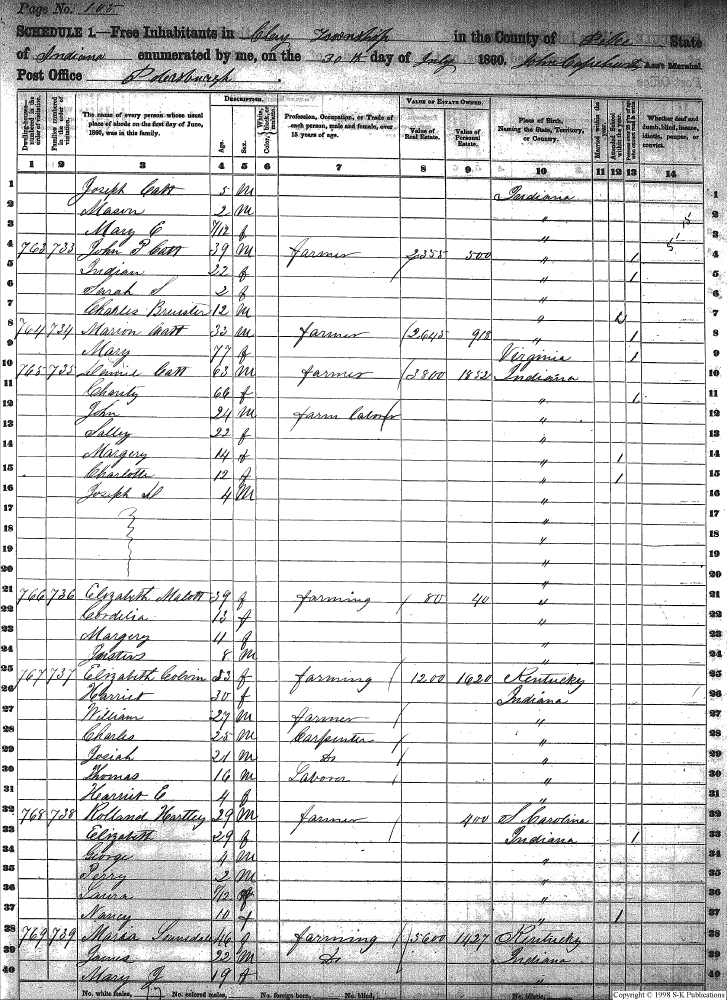 Page No. 105
SCHEDULE 1.—Free Inhabitants in Clay Township in the County of Pike State
of Indiana enumerated by me, on the 30th day of July 1860. John Capehart Ass't Marshal.
Post Office Petersburgh
Dwelling-houses—numbered in the order of visitation.
Families numbered in the order of visitation.
The name of every person whose usual place of abode on the first day of June, 1860, was in this family.
DESCRIPTION.
Age.
Sex.
Color, White, black, or mulatto.
Profession, Occupation, or Trade of each person, male and female, over 15 years of age.
VALUE OF ESTATE OWNED.
Value of Real Estate.
Value of Personal Estate.
Place of Birth, Naming the State, Territory, or Country.
Married within the year.
Attended School within the year.
Whether deaf and dumb, blind, insane, idiotic, pauper, or convict.
1 2 3 4 5 6 7 8 9 10 11 12 13 14
1 Joseph Catt 5 m Indiana 1
2 Mason 2 m " 2
3 Mary C 7/12 f " 3
4 763 733 John P Catt 39 m farmer 2355 500 " 1 4
5 Indian 22 f " 1 5
6 Sarah S 2 f " 6
7 Charles Brewster 12 m " 7
8 764 734 Marion Catt 33 m farmer 2645 918 " 1 8
9 Mary 77 f Virginia 1 9
10 765 735 Catt 63 m farmer 3800 1852 Indiana 10
11 Charity 66 f " 1 11
12 John 24 m farm labor " 12
13 Salley 22 f " 13
14 Margery 14 f " 1 14
15 Charlotte 12 f " 1 15
16 Joseph 4 m " 16
17 " 17
18 " 18
19 " 19
20 " 20
21 766 736 Elizabeth Malott 39 f farming 80 40 " 21
22 Cordelia 13 f " 22
23 Margery 11 f " 23
24 8 m " 24
25 767 737 Elizabeth Colvin 53 f farming 1200 1620 Kentucky 25
26 Harriet 30 f Indiana 26
27 William 27 m farmer " 27
28 Charles 25 m Carpenter " 28
29 Josiah 21 m Do " 29
30 Thomas 16 m Laborer " 30
31 Harriet E 4 f " 31
32 768 738 Rolland Hartley 29 m farmer 400 S Carolina 32
33 Elizabeth 29 f Indiana 1 33
34 George 4 m " 34
35 Perry 2 m " 35
36 Laura 7/12 f " 36
37 Nancy 10 f " 1 37
38 769 739 Lounsdale 46 f farming 5600 1427 Kentucky 38
39 James 22 m Do Indiana 39
40 Mary J 19 f " 40
No. white males, 17 No. colored males, No. foreign born, No. blind, No. idiotic,
Copyright © 1998 S-K Publications